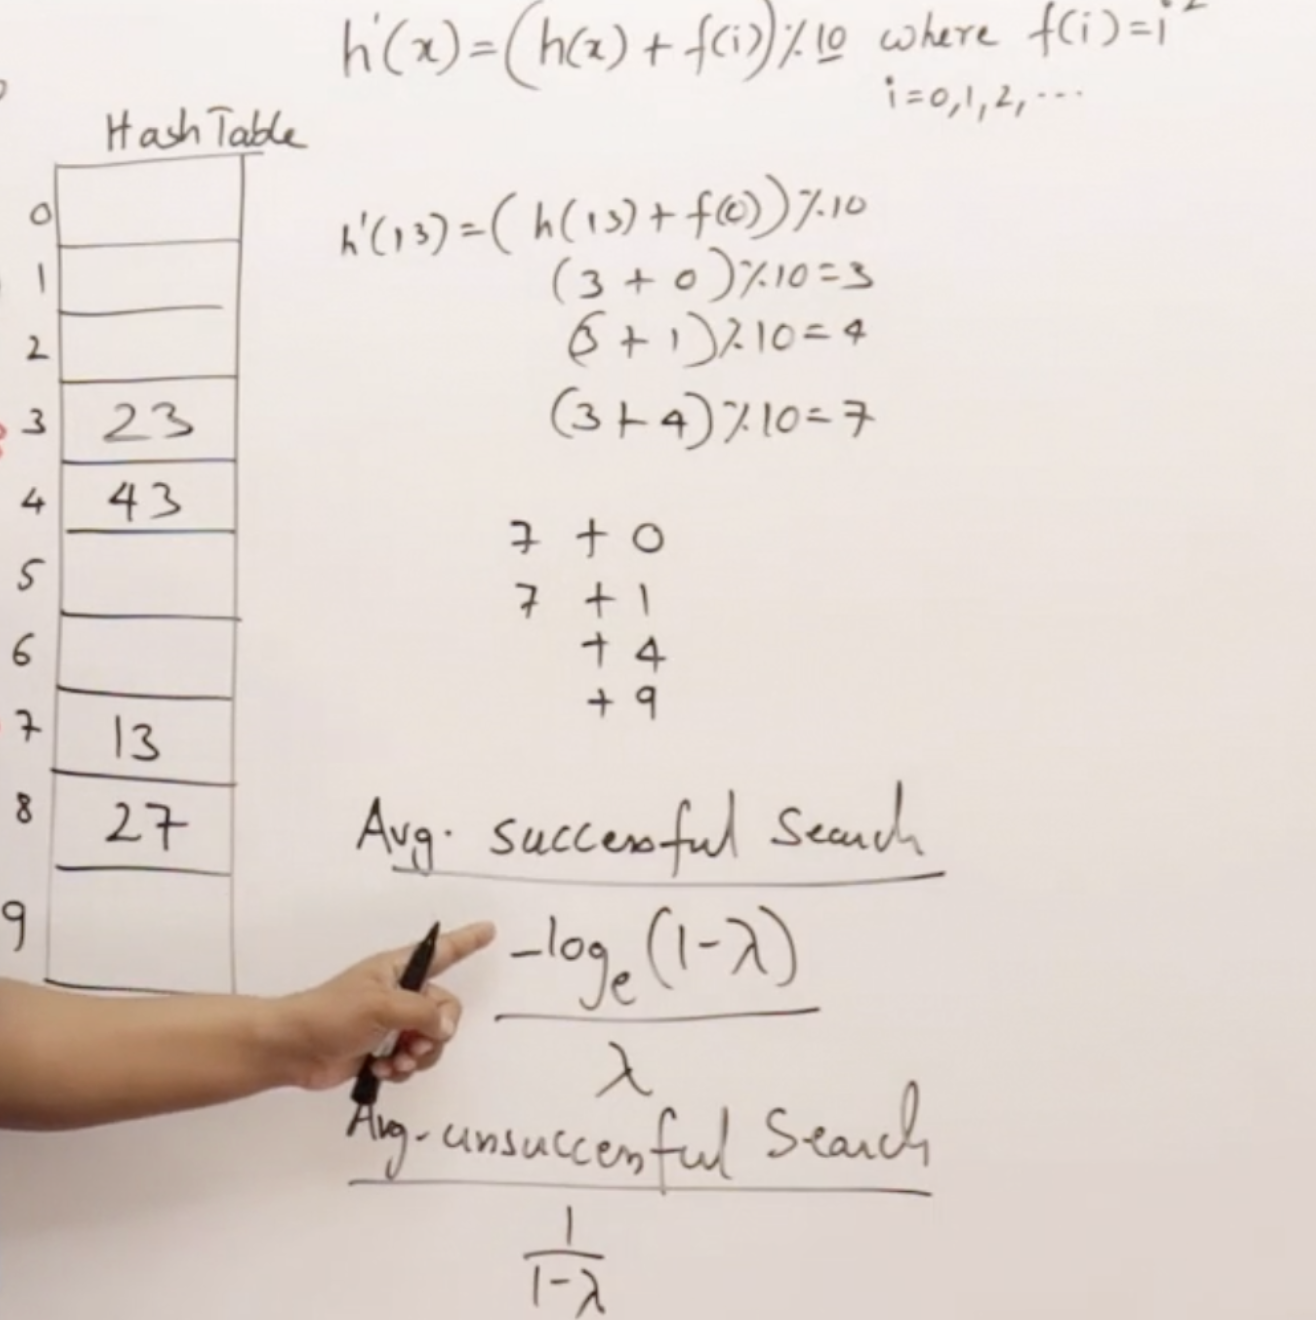 h'(x) = (h(x) + f(i)) % 10 where f(i) = i²
i = 0, 1, 2, ...
Hash Table
0
1
2
3 23
4 43
5
6
7 13
8 27
9
h'(13) = (h(13) + f(0)) % 10
(3 + 0) % 10 = 3
(3 + 1) % 10 = 4
(3 + 4) % 10 = 7
7 + 0
7 + 1
+ 4
+ 9
Avg. successful Search
-logₑ(1-λ)
λ
Avg. unsuccessful Search
1
1-λ